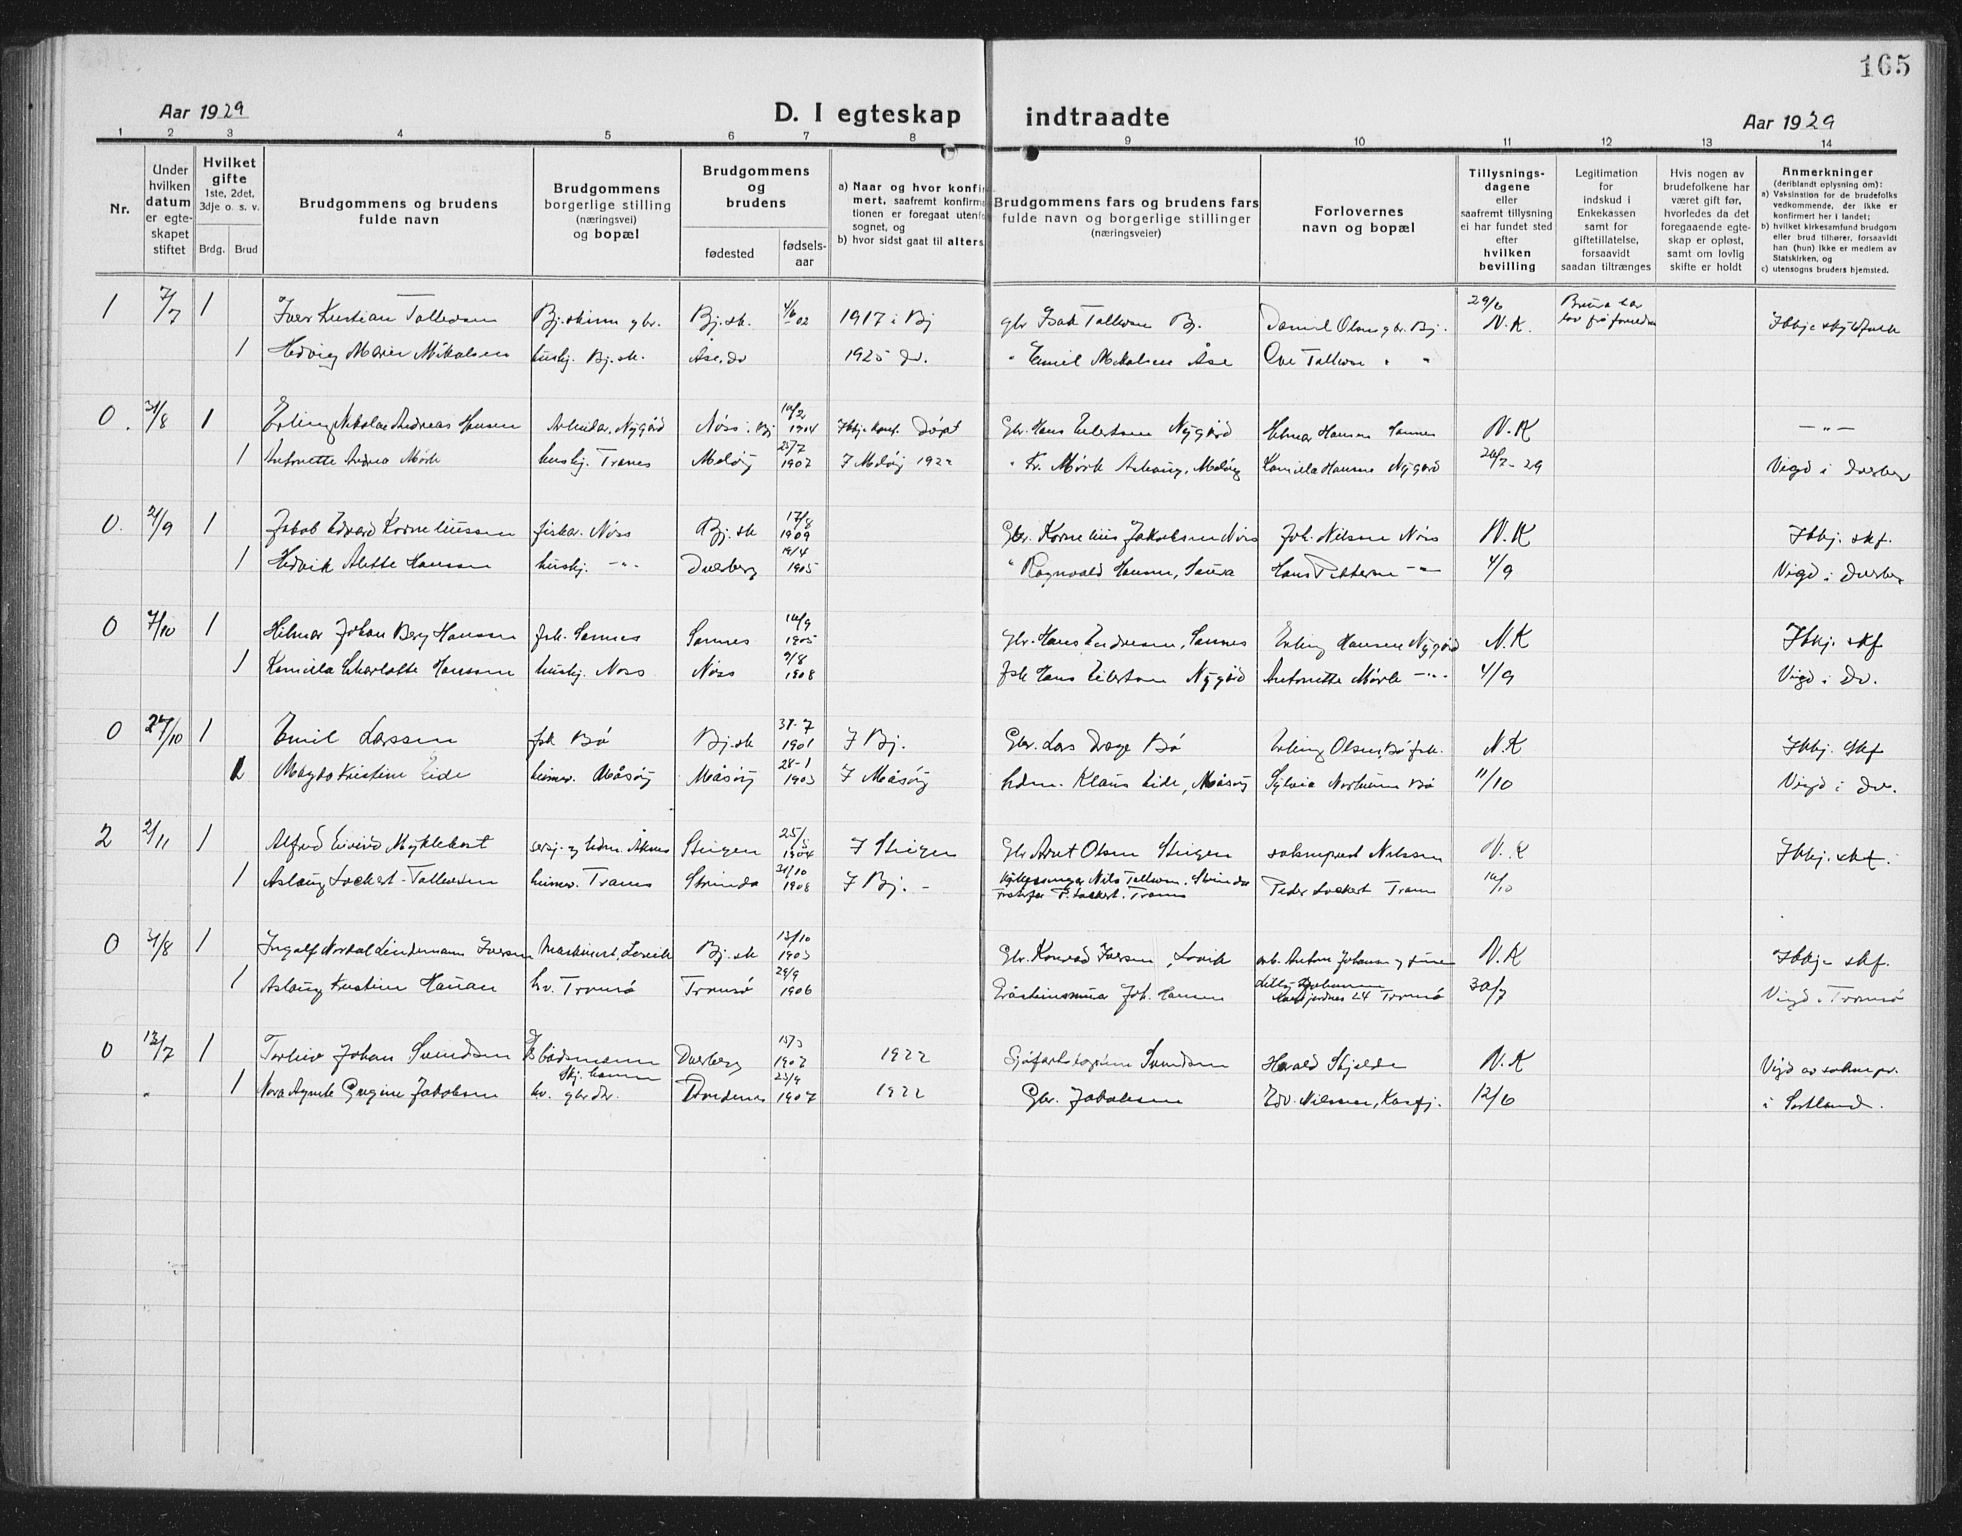 165
Aar 1929 D. I egteskap indtraadte Aar 1929
1 2 3 4 5 6 7 8 9 10 11 12 13 14
Nr.
Under hvilken datum er egteskapet stiftet
Hvilket gifte 1ste, 2det, 3dje o. s. v.
Brdg. Brud
Brudgommens og brudens fulde navn
Brudgommens borgerlige stilling (næringsvei) og bopæl
Brudgommens og brudens
fødested fødsels-aar
a) Naar og hvor konfir
mert, saafremt konfirma
tionen er foregaat utenfo
sognet, og
b) hvor sidst gaat til alters.
Brudgommens fars og brudens fars fulde navn og borgerlige stillinger (næringsveier)
Forlovernes navn og bopæl
Tillysnings-dagene eller saafremt tillysning ei har fundet sted efter hvilken bevilling
Legitimation for indskud i Enkekassen samt for giftetillatelse, forsaavidt saadan tiltrænges
Hvis nogen av brudefolkene har været gift før, hvorledes da det foregaaende egteskap er opløst, samt om lovlig skifte er holdt
Anmerkninger (deriblandt oplysning om):
a) Vaksination for de brudefolks vedkommende, der ikke er konfirmert her i landet;
b) hvilket kirkesamfund brudgom eller brud tilhører, forsaavidt han (hun) ikke er medlem av Statskirken, og
c) utensogns bruders hjemsted.
1 7/7 1 Iver Kristian Tollevsen Bj.skinn gbr. Bj.sk. 4/6 -02 1917 i Bj gbr Isak Tollevsen Bj. Daniel Olsen gbr. Bj. 29/6 N.K.
1 Hedvig Marie Mikalsen husbj. Bj.sk. Åse. Dv 1925 Dv. " Emil Mikalsen Åse Ove Tollevsen " "
0 31/8 1 Erling Nikolai Andreas Hansen Arbeidar. Nygård Nøss. Bj 1904 Gbr. Hans Eilertsen Nygård Hilmar Hansen Sannes N.K — " —
1 Antonette Andrea Mørk husbj. Tranes Meløy 25/7 1902 I Meløy 1922 " Kr. Mørk, Meløy Kamilla Hansen Nygård 26/7-29 Vigd i Dverberg
0. 21/9 1 Jakob Edvard Korneliussen fiskar. Nøss Bj.sk 17/8 1909 Gbr. Kornelius Jakobsen Nøss Joh. Nilsen Nøss N.K Ikkj. skf.
1 Hedvik Alette Hansen husbj. -"- Dverberg 19/4 1905 " Ragnvald Hansen, Saura Hans Pettersen -"- 4/9 Vigd i Dverberg
0 7/10 1 Hilmar Johan Berg Hansen fsk. Sannes Sannes 14/9 1905 gbr. Hans Andresen, Sannes Erling Hansen Nygård N.K Ikkj. skf
1 Kamilla Charlotte Hanssen husbj. Nøss Nøss 9/8 1908 fsk Hans Eilertsen Nygård Antonette Mørk -"- 4/9 Vigd i Dv.
0 27/10 1 Emil Larssen fsk Bø Bj.sk 31-7 1901 I Bj. Gbr. Lars Dage Bø Erling Olsen, Bø fsk. N.K Ikkj. skf
1 Magda Kristine Eide heimev. Måsøy Måsøy 28-1 1903 I Måsøy hdm. Klaus Eide, Måsøy Sylvia Norheim Bø 11/10 Vigd i Dv.
2 2/11 1 Alfred Eivind Myklebost sersj. og hdm. Åknes Steigen 25/5 1904 I Steigen Gbr Arnt Olsen Steigen sokneprest Nilssen N.K Ikkj. skf.
1 Aslaug Lockert-Tollevsen heimev. Tranes Strinda 31/10 1908 I Bj. - Kyrkjesongar Nils Tollevsen. Strinda
Fosterfar P. Lockert. Tranes Peder Lockert Tranes 16/10
0 31/8 1 Ingolf Nordal Lindemann Iversen Maskinist, Lovik Bj.sk 13/10 1903 Gbr. Konrad Iversen, Lovik arb. Anton Johansen og frue N.K Ikkj. skf.
1 Aslaug Kristine Hansen hv. Tromsø Tromsø 29/9 1906 Joh. Hansen 24 Tromsø 30/7 Vigd i Tromsø
0 13/7 1 Torleiv Johan Svendsen båtsmann Dverberg 15/3 1902 1922 Svendsen Harald Skjelde N.K Vigd av soknepr.
" 1 Nora Agnete Gurine Jakobsen hv. gbrdtr. Trondenes 23/9 1907 1922 Gbr. Jakobsen Edv. Nilsen, Kasfj. 12/6 i Sortland.